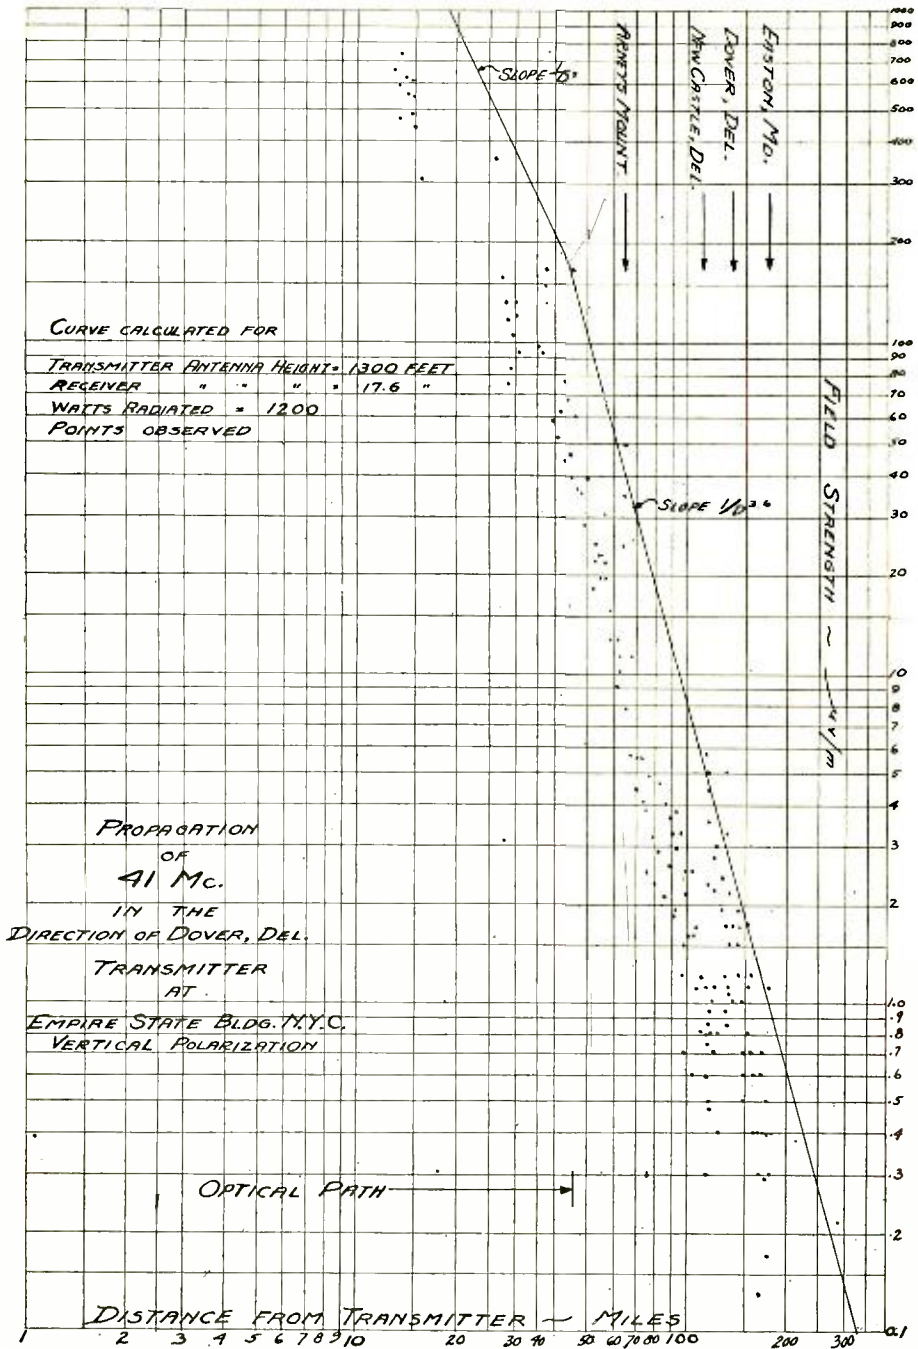 SLOPE 1/D²
ARNEYS MOUNT.
NEW CASTLE, DEL.
DOVER, DEL.
EASTON, MD.
CURVE CALCULATED FOR
TRANSMITTER ANTENNA HEIGHT = 1300 FEET
RECEIVER " " " = 17.6 "
WATTS RADIATED = 1200
POINTS OBSERVED
SLOPE 1/D³·⁶
FIELD STRENGTH ~ μV/m
PROPAGATION
OF
41 MC.
IN THE
DIRECTION OF DOVER, DEL.
TRANSMITTER
AT
EMPIRE STATE BLDG. N.Y.C.
VERTICAL POLARIZATION
OPTICAL PATH
DISTANCE FROM TRANSMITTER ~ MILES
1 2 3 4 5 6 7 8 9 10 20 30 40 50 60 70 80 100 200 300
1000
900
800
700
600
500
400
300
200
100
90
80
70
60
50
40
30
20
10
9
8
7
6
5
4
3
2
1.0
.9
.8
.7
.6
.5
.4
.3
.2
0.1